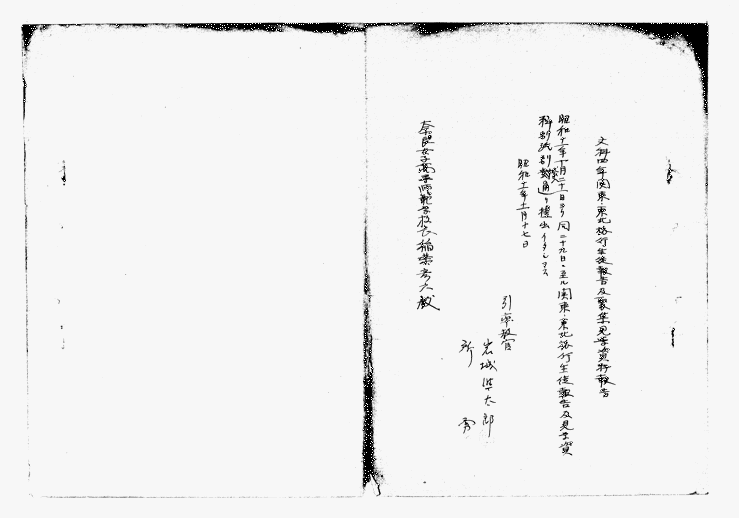 文科四年関東・東北旅行生徒報告及蒐集見学資料報告
昭和十一年十月二十一日ヨリ同二十九日ニ至ル関東・東北旅行生徒報告及見学資
料別紙別冊通リ提出イタシマス
昭和十一年十一月十七日
引率教官
岩城準太郎
奈良女子高等師範学校長 殿